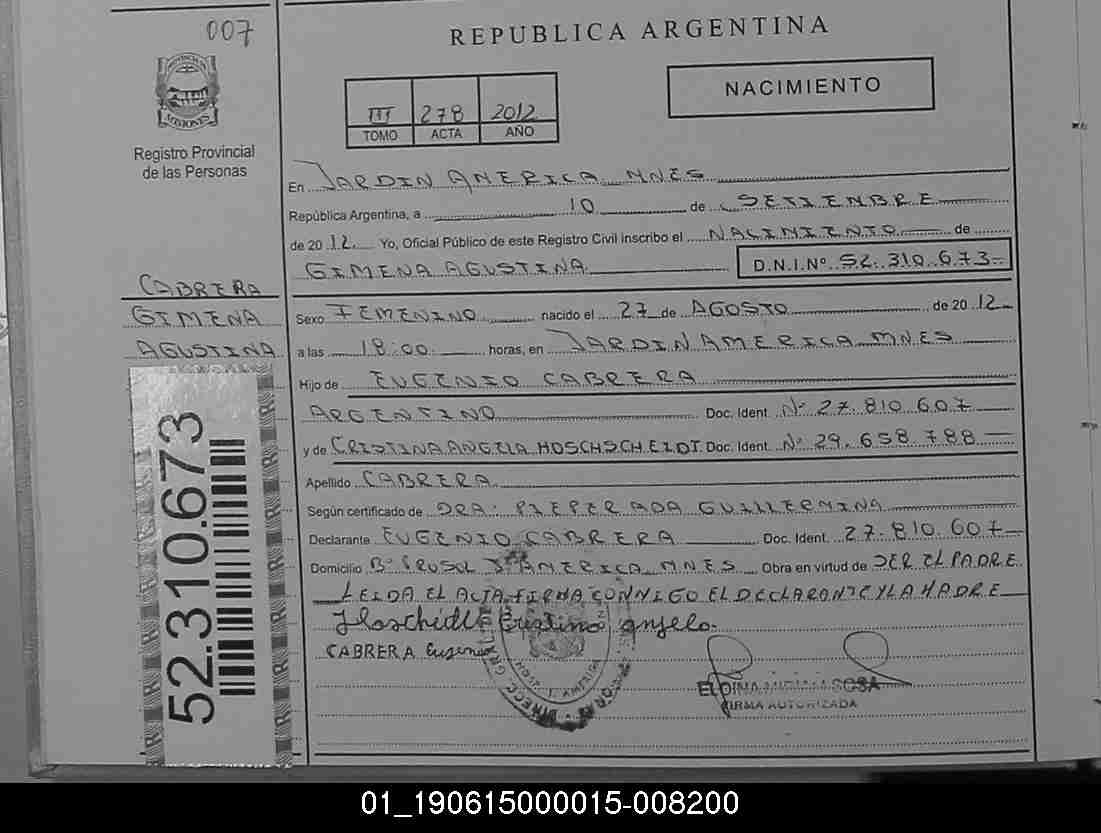 007
REPUBLICA ARGENTINA
NACIMIENTO
III 278 2012
TOMO ACTA AÑO
PROVINCIA DE
MISIONES
Registro Provincial
de las Personas
En JARDIN AMERICA MNES
República Argentina, a 10 de SETIEMBRE
de 2012. Yo, Oficial Público de este Registro Civil inscribo el NACIMIENTO de
GIMENA AGUSTINA D.N.I.Nº 52.310.673-
CABRERA
GIMENA
AGUSTINA
Sexo FEMENINO nacido el 27 de AGOSTO de 2012
a las 18:00 horas, en JARDIN AMERICA MNES
Hijo de EUGENIO CABRERA
ARGENTINO Doc. Ident. Nº 27.810.607
y de CRISTINA ANGELA HOSCHSCHEIDT Doc. Ident. Nº 29.658.788
Apellido CABRERA
Según certificado de DRA: PIEPER ADA GUILLERMINA
Declarante EUGENIO CABRERA Doc. Ident. 27.810.607
Domicilio Bº CRUSOL J. AMERICA MNES Obra en virtud de SER EL PADRE
LEIDA EL ACTA FIRMA CONMIGO EL DECLARANTE Y LA MADRE
Cristina angela
CABRERA Eugenio
SOSA
FIRMA AUTORIZADA
52.310.673
01_190615000015-008200